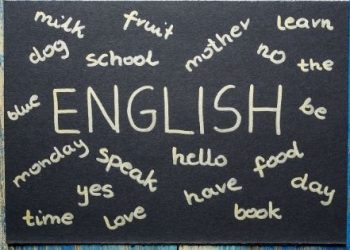 milk fruit learn
dog school mother no the
blue ENGLISH be
monday speak hello food
yes have day
time love book